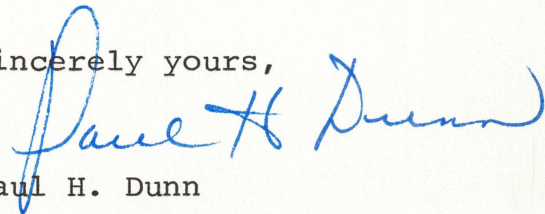 incerely yours,
Paul H Dunn
aul H. Dunn